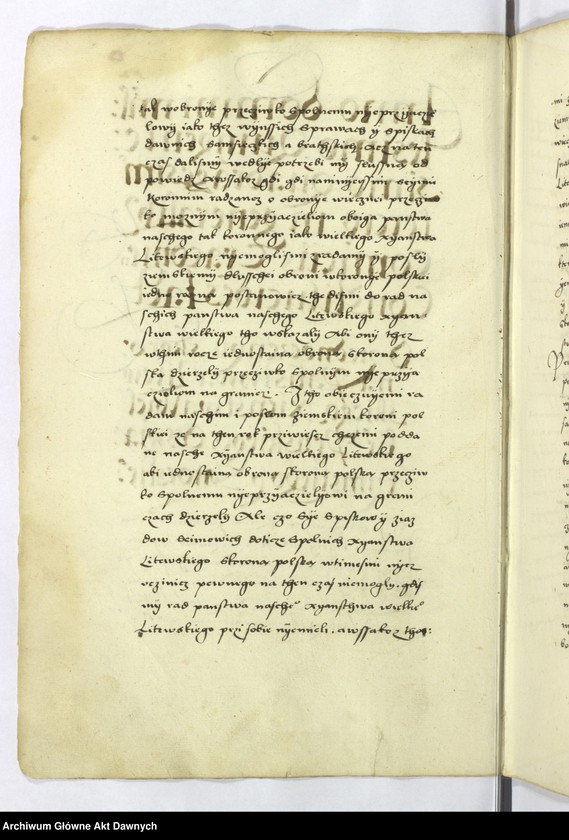 tak wobronye przeciwko spolnemu nyeprzyacze
lowy iako thez wynssich sprawach y spiskach
dawnich samsieczkich a bratthskich. Acz na ten
czas dalismy wedlye potrzebi my slussnich od
powiedz Awssakoz gdi gdi naminyeissim seymi
Koronnim radzano o obronye wieczni przeciw
ko moznym nyeprzyacielom oboiga panstwa
naschego tak koronnego iako wielkiego xyanstwa
Litowskiego nyemoglismi zradamy y posly
ziemskiemy slusschei obroni wkoronye polskiei
iedno razna postanowicz thedismi do rad na
schich panstwa naschego Litewskiego xyan
stwa wielkiego tho wskazaly Abi ony thez
wthim rocze iednostaina obrona skorona pol
ska dzierzely przeciwko spolnym nyeprzya
czielom na granicz. I tho obieczuyemi ra
dam naschim i poslom ziemskiem koroni pol
skiei ze na then rok przwiescz chczemi podda
ne nasche xyanstwa wielkiego Litewskiego
abi iednostaina obrona skorona polska przeciw
ko spolnemu nyeprzyaczielyowi na grani
czach dzierzely Ale czo sye spiskow y ziaz
dow seimowich doticze spolnich xyanstwa
Litewskiego skorona polska wtimesmi nycz
vczinicz pewnego na then czas niemogly. gdis
my rad panstwa nasche° xyansthwa wielkie°
Litewskiego przi sobie nyemieli. awssakoz thos:
Archiwum Główne Akt Dawnych